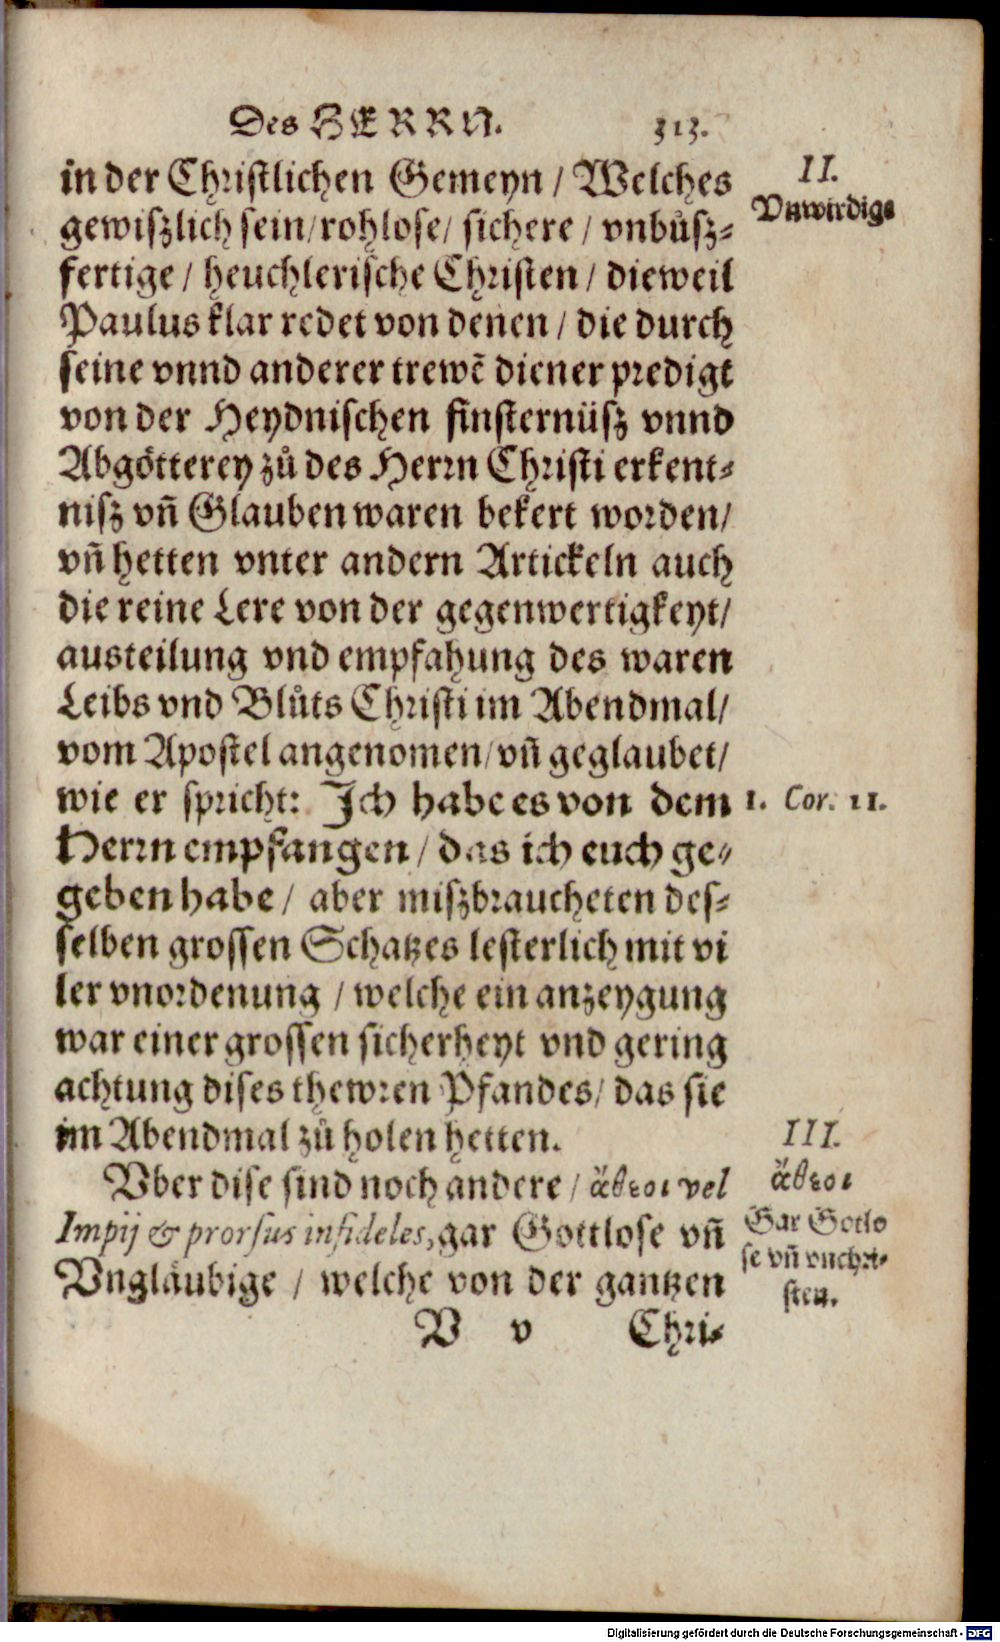 Des HERRN. 313.
in der Christlichen Gemeyn / Welches
gewiszlich sein / rohlose / sichere / vnbůsz-
fertige / heuchlerische Christen / dieweil
Paulus klar redet von denen / die durch
seine vnnd anderer trewē diener predigt
von der Heydnischen finsternüsz vnnd
Abgötterey zů des Herrn Christi erkent-
nisz vn̄ Glauben waren bekert worden /
vn̄ hetten vnter andern Artickeln auch
die reine Lere von der gegenwertigkeyt /
austeilung vnd empfahung des waren
Leibs vnd Blůts Christi im Abendmal /
vom Apostel angenomen / vn̄ geglaubet /
wie er spricht: Ich habe es von dem
Herrn empfangen / das ich euch ge-
geben habe / aber miszbraucheten des-
selben grossen Schatzes lesterlich mit vi
ler vnordenung / welche ein anzeygung
war einer grossen sicherheyt vnd gering
achtung dises thewren Pfandes / das sie
im Abendmal zů holen hetten.
Vber dise sind noch andere / ἄθεοι vel
Impij & prorsus infideles, gar Gottlose vn̄
Vngläubige / welche von der gantzen
V v Chri-
II.
Vnwirdige
1. Cor. 11.
III.
ἄθεοι
Gar Gotlo
se vn̄ vnchri-
sten.
Digitalisierung gefördert durch die Deutsche Forschungsgemeinschaft - DFG